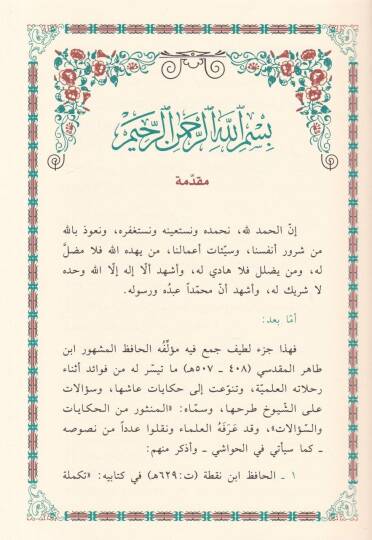 بسم الله الرحمن الرحيم
مقدّمة
إنّ الحمد لله، نحمده ونستعينه ونستغفره، ونعوذ بالله
من شرور أنفسنا، وسيّئات أعمالنا، من يهده الله فلا مضلَّ
له، ومن يضلل فلا هادي له، وأشهد ألّا إله إلّا الله وحده
لا شريك له، وأشهد أنّ محمّداً عبدُه ورسوله.
أمّا بعد:
فهذا جزء لطيف جمع فيه مؤلِّفُه الحافظ المشهور ابن
طاهر المقدسي (٤٠٨ ـ ٥٠٧هـ) ما تيسّر له من فوائد أثناء
رحلاته العلميّة، وتنوّعت إلى حكايات عاشها، وسؤالات
على الشّيوخ طرحها، وسمّاه: «المنثور من الحكايات
والسّؤالات»، وقد عَرَفَهُ العلماء ونقلوا عدداً من نصوصه
ـ كما سيأتي في الحواشي ـ وأذكر منهم:
١ ـ الحافظ ابن نقطة (ت:٦٢٩هـ) في كتابيه: «تكملة